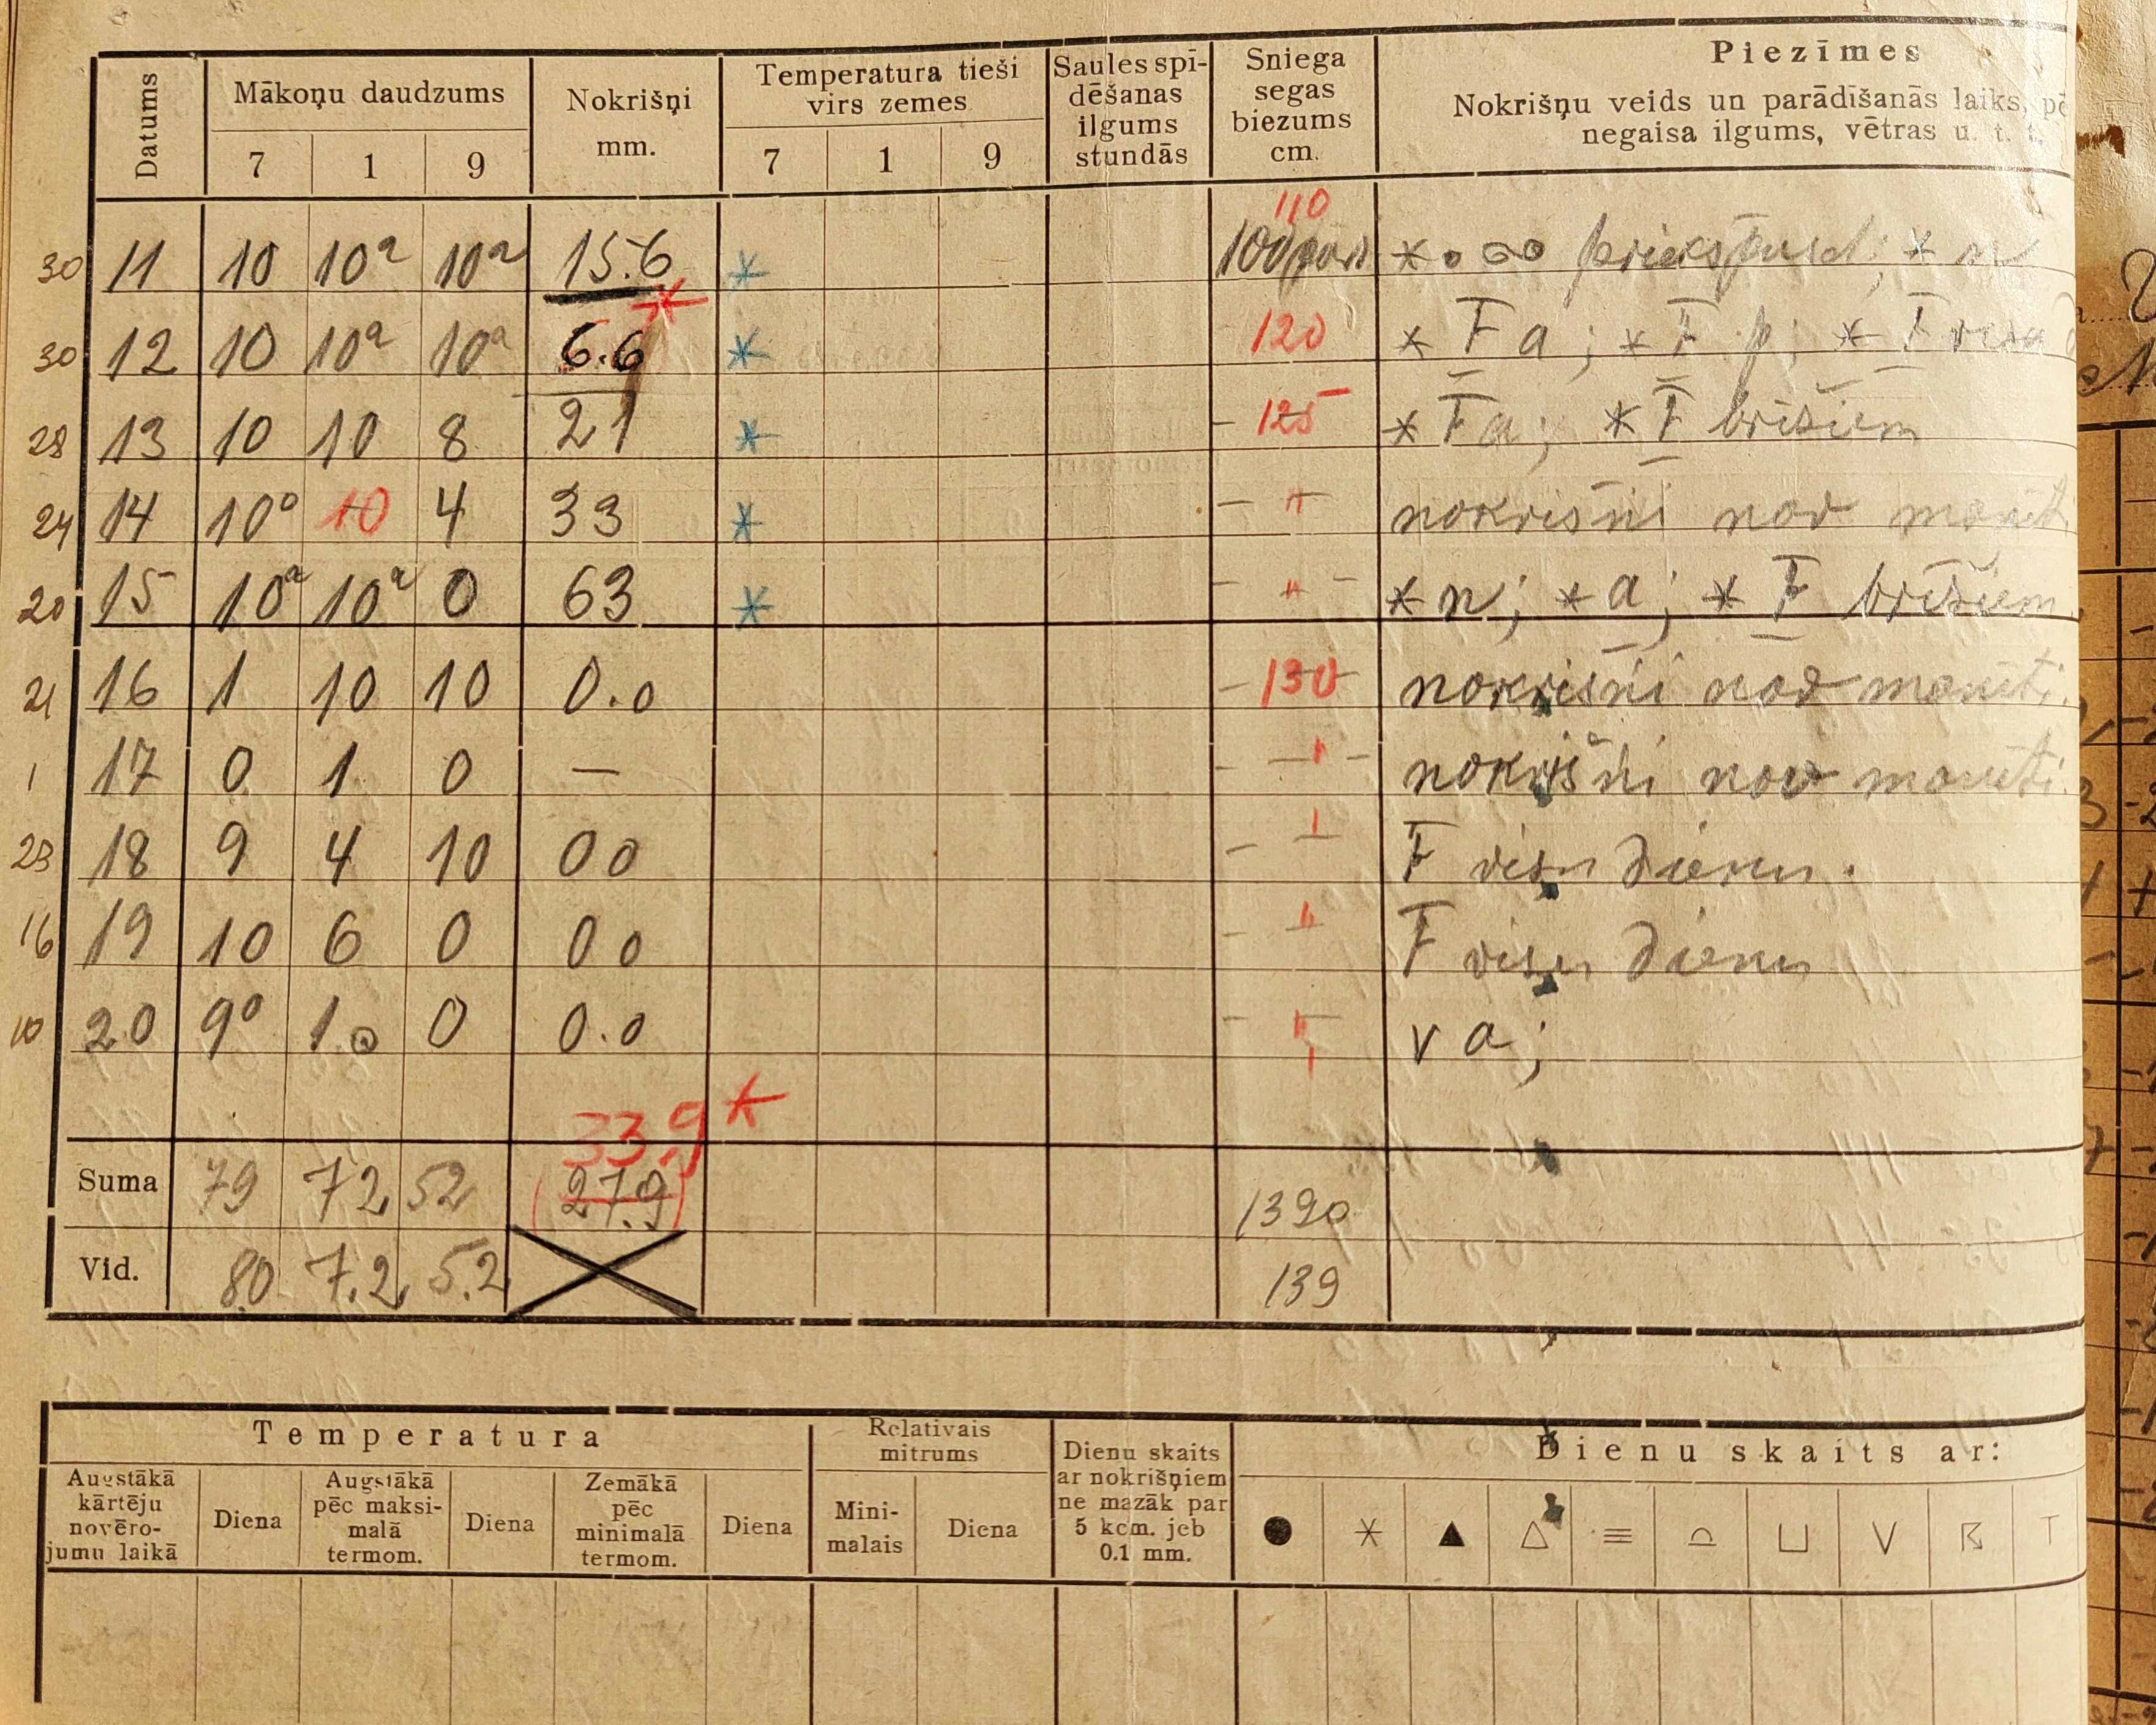 Datums
Mākoņu daudzums
7 1 9
Nokrišņi
mm.
Temperatura tieši
virs zemes
7 1 9
Saules spī-
dēšanas
ilgums
stundās
Sniega
segas
biezums
cm.
Piezīmes
Nokrišņu veids un parādīšanās laiks, pē
negaisa ilgums, vētras u. t. t.
110
30 11 10 10² 10² 15.6 * 100 * • ∞ priekšpusd; * n
*
30 12 10 10² 10² 6.6 * 120 * F a; * F p; * F visu
28 13 10 10 8 21 * - 125 * F a; * F brīšiem
24 14 10⁰ 10 4 33 * - " - nokrišņi nav
20 15 10² 10² 0 63 * - " - * n; * a; * F brīšiem
21 16 1 10 10 0.0 - 130 - nokrišņi nav
1 17 0 1 0 — - " - nokrišņi nav
23 18 9 4 10 00 - " F visu dienu.
16 19 10 6 0 00 - " F visu dienu
10 20 9⁰ 10 0 0.0 - " V a;
33.9 *
Suma 79 72 52 (27.9) 1390
Vid. 8.0 7.2 5.2 139
Temperatura
Augstākā
kārtēju
novēro-
jumu laikā
Diena
Augstākā
pēc maksi-
malā
termom.
Diena
Zemākā
pēc
minimalā
termom.
Diena
Relativais
mitrums
Mini-
malais
Diena
Dienu skaits
ar nokrišņiem
ne mazāk par
5 kcm. jeb
0.1 mm.
Dienu skaits ar:
● * ▲ △ ≡ ⌓ ⊔ V ☈ T